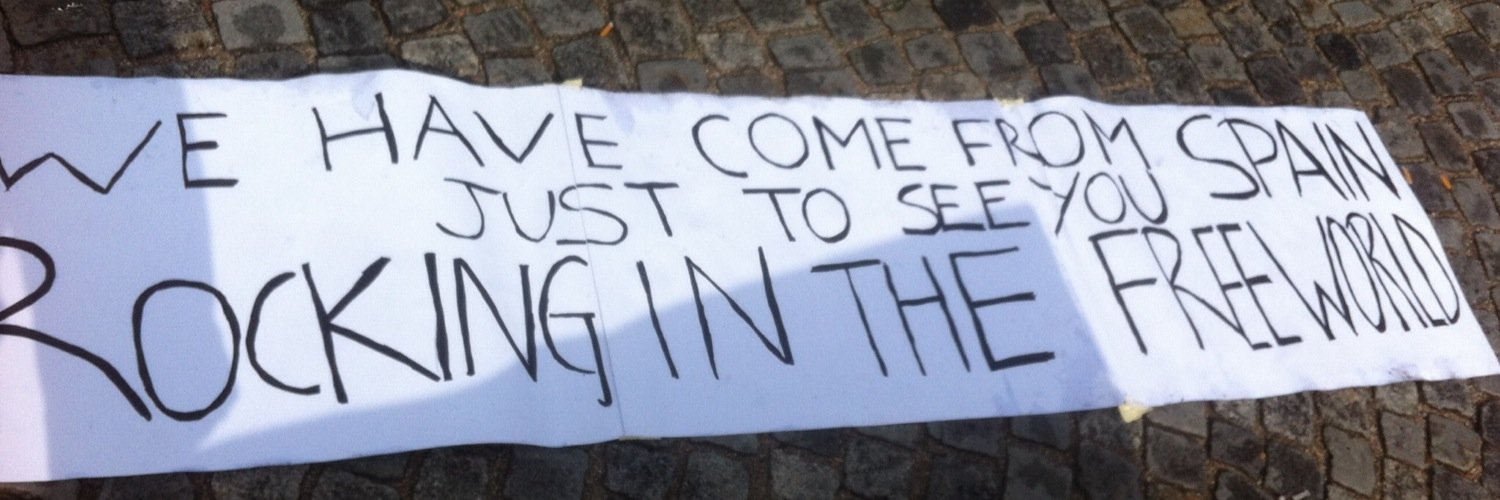 WE HAVE COME FROM SPAIN
JUST TO SEE YOU
ROCKING IN THE FREE WORLD